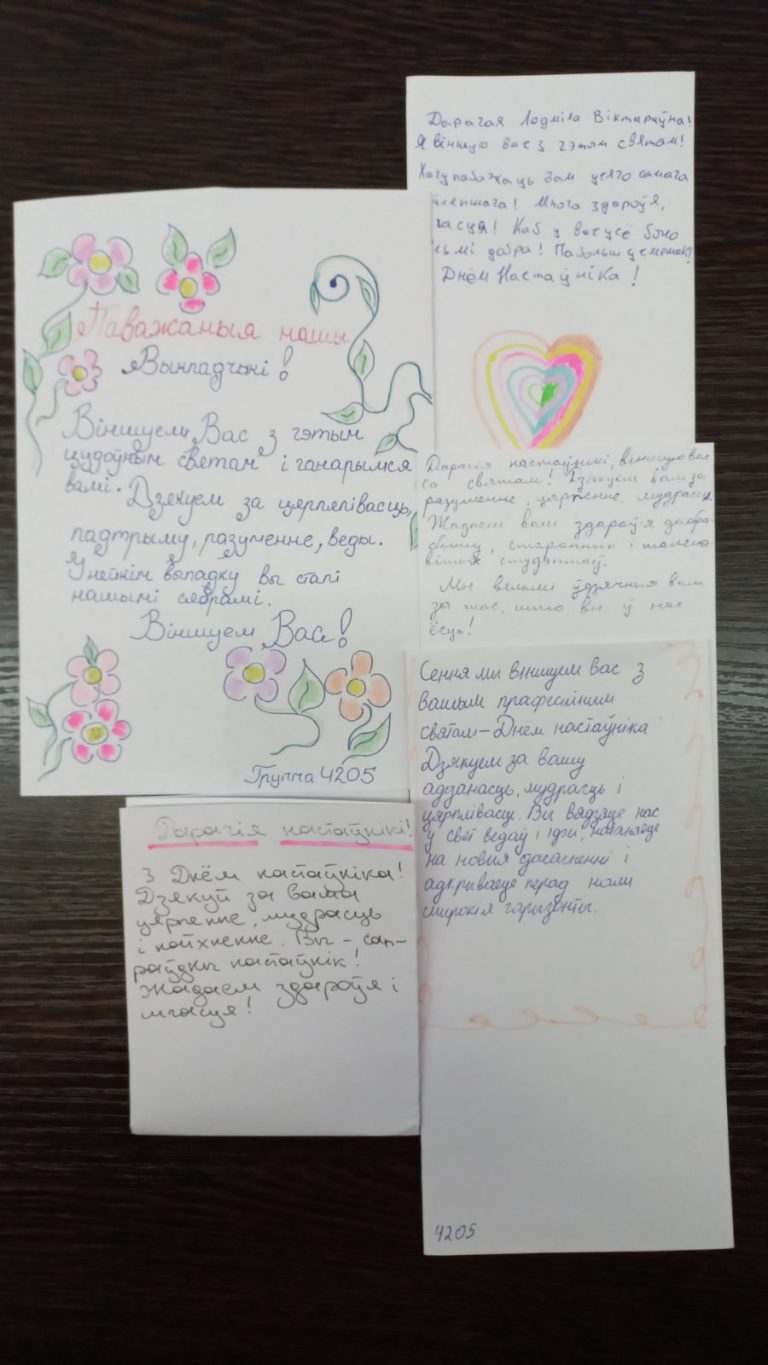 Паважаныя нашы
Выкладчыкі!
Віншуем Вас з гэтым
цудоўным святам і ганарымся
вамі. Дзякуем за цярплівасць,
падтрыму, разуменне, веды.
У нейкім выпадку вы сталі
нашымі сябрамі.
Віншуем Вас!
Группа 4205
Дарагая Людміла Віктараўна!
Я віншую вас з гэтым святам!
Хачу пажажаць вам усяго самага
лепшага! Многа здароўя,
часця! Каб у вас усё было
вельмі добра! Пабольш усмешак?
Днём Настаўніка!
Дарагія настаўнікі, віншую вас
са святам! Дзякуем вам за
разуменне, цярпенне, мудрасць.
Жадаем вам здароўя дабра-
быту, старанных і таленa-
вітых студэнтаў.
Мы вельмі ўдзячныя вам
за тое, што вы ў нас
ёсць!
Сення мы віншуем вас з
вашым прафесійным
святам - Днем настаўніка
Дзякуем за вашу
адданасць, мудрасць і
цярплівасць. Вы вядзяце нас
у свет ведаў і ідэй,
на новыя дасягненні і
адкриваеце перад намі
шырокія гарызонты.
4205
Дарагія настаўнікі!
З Днём настаўніка!
Дзякуй за ваша
цярпенне, мудрасць
і натхненне. Вы - сап-
раўдны настаўнік!
Жадаем здароўя і
шчасця!